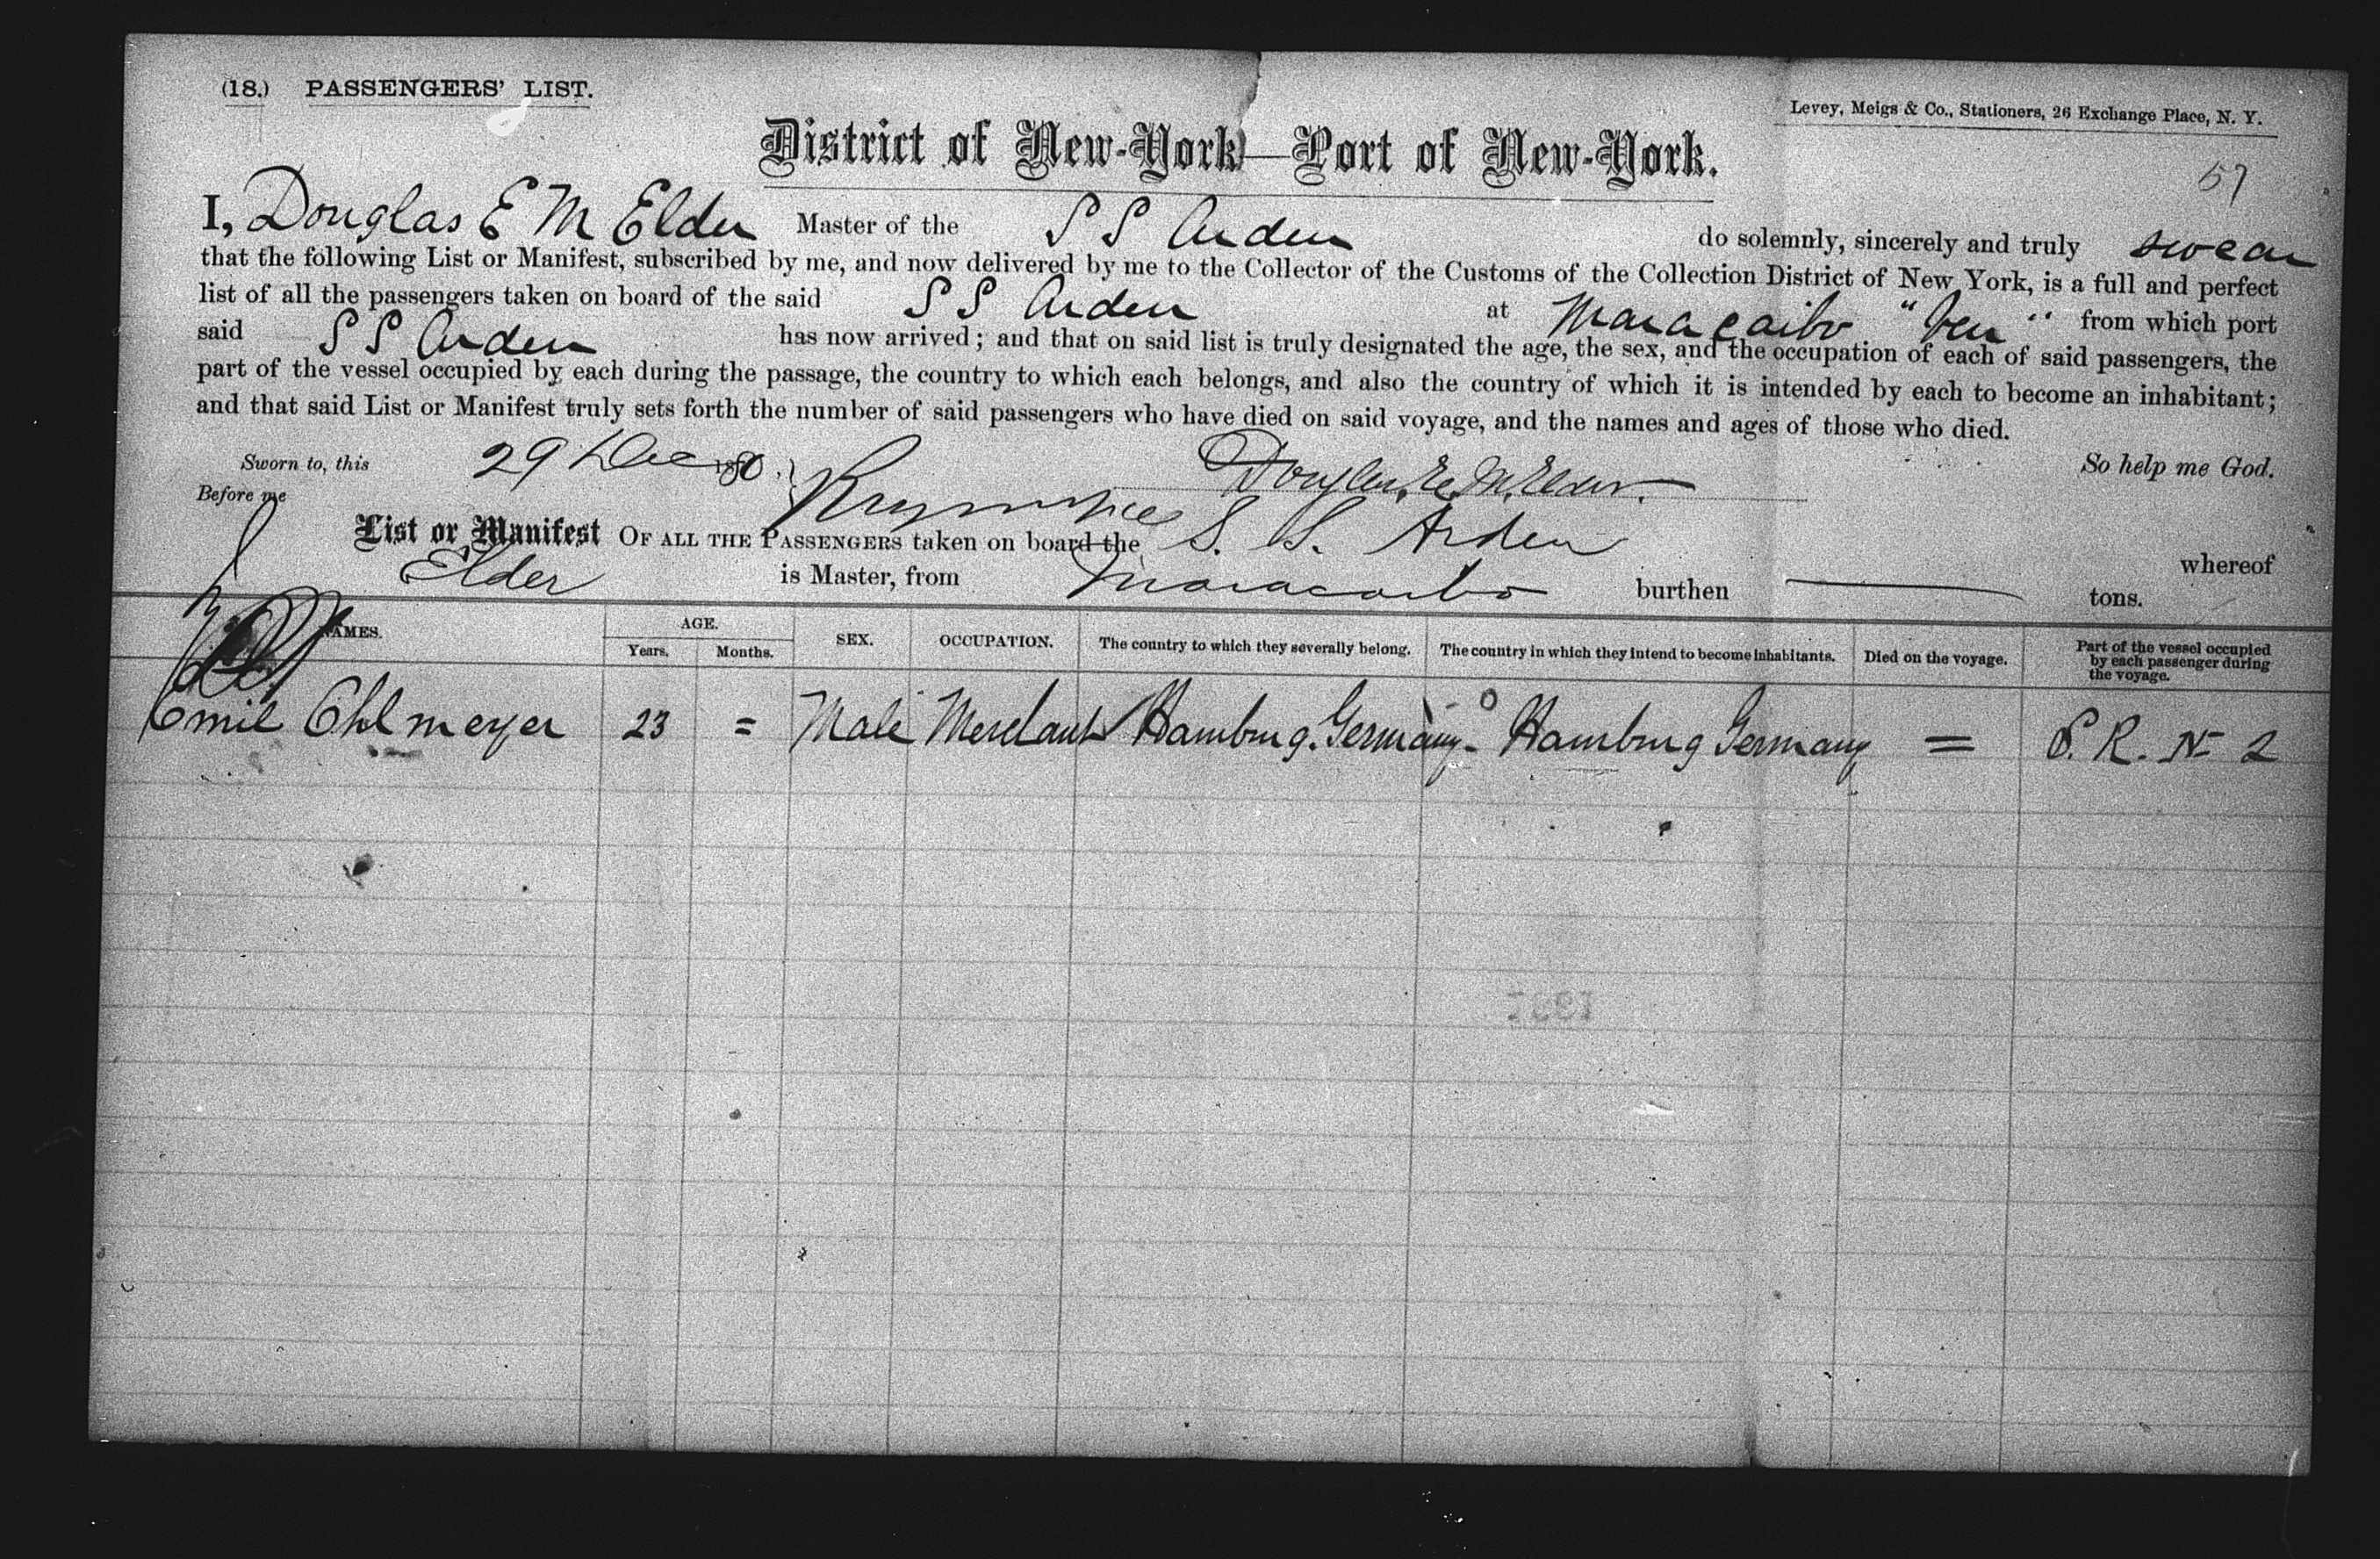 (18.) PASSENGERS' LIST.
Levey, Meigs & Co., Stationers, 26 Exchange Place, N. Y.
District of New-York—Port of New-York.
57
I, Douglas E M Elder Master of the S S Arden do solemnly, sincerely and truly swear
that the following List or Manifest, subscribed by me, and now delivered by me to the Collector of the Customs of the Collection District of New York, is a full and perfect
list of all the passengers taken on board of the said S S Arden at Maracaibo "Ven" from which port
said S S Arden has now arrived; and that on said list is truly designated the age, the sex, and the occupation of each of said passengers, the
part of the vessel occupied by each during the passage, the country to which each belongs, and also the country of which it is intended by each to become an inhabitant;
and that said List or Manifest truly sets forth the number of said passengers who have died on said voyage, and the names and ages of those who died.
Sworn to, this 29 Dec 1880. Douglas. E. M. Elder. So help me God.
Before me
List or Manifest OF ALL THE PASSENGERS taken on board the S. S. Arden whereof
Elder is Master, from Maracaibo burthen tons.
NAMES. AGE. Years. Months. SEX. OCCUPATION. The country to which they severally belong. The country in which they intend to become inhabitants. Died on the voyage. Part of the vessel occupied by each passenger during the voyage.
Emil Ohlmeyer 23 = Male Merchant Hamburg. Germany. Hamburg Germany = S. R. No 2